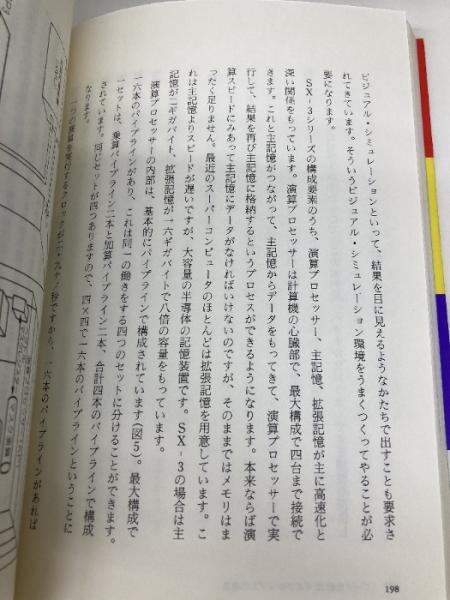 ビジュアル・シミュレーションといって、結果を目に見えるようなかたちで出すことも要求さ
れてきています。そういうビジュアル・シミュレーション環境をうまくつくってやることが必
要になります。
SX-3シリーズの構成要素のうち、演算プロセッサー、主記憶、拡張記憶が主に高速化と
深い関係をもっています。演算プロセッサーは計算機の心臓部で、最大構成で四台まで接続で
きます。これと主記憶がつながって、主記憶からデータをもってきて、演算プロセッサーで実
行して、結果を再び主記憶に格納するというプロセスができるようになります。本来ならば演
算スピードにみあって主記憶にデータがなければいけないのですが、そのままではメモリはま
ったく足りません。最近のスーパーコンピュータのほとんどは拡張記憶を用意しています。こ
れは主記憶よりスピードが遅いですが、大容量の半導体の記憶装置です。SX-3の場合は主
記憶が二ギガバイト、拡張記憶が一六ギガバイトで八倍の容量をもっています。
演算プロセッサーの内部は、基本的にパイプラインで構成されています(図5)。最大構成で
一六本のパイプラインがあり、これは同一の働きをする四つのセットに分けることができます。
一セットは、乗算パイプライン二本と加算パイプライン二本、合計四本のパイプラインで構成
されています。同じセットが四つありますので、四×四で一六本のパイプラインということに
なります。
一つの演算を実行するクロックが二・九ナノ秒ですから、一六本のパイプラインがあれば
198